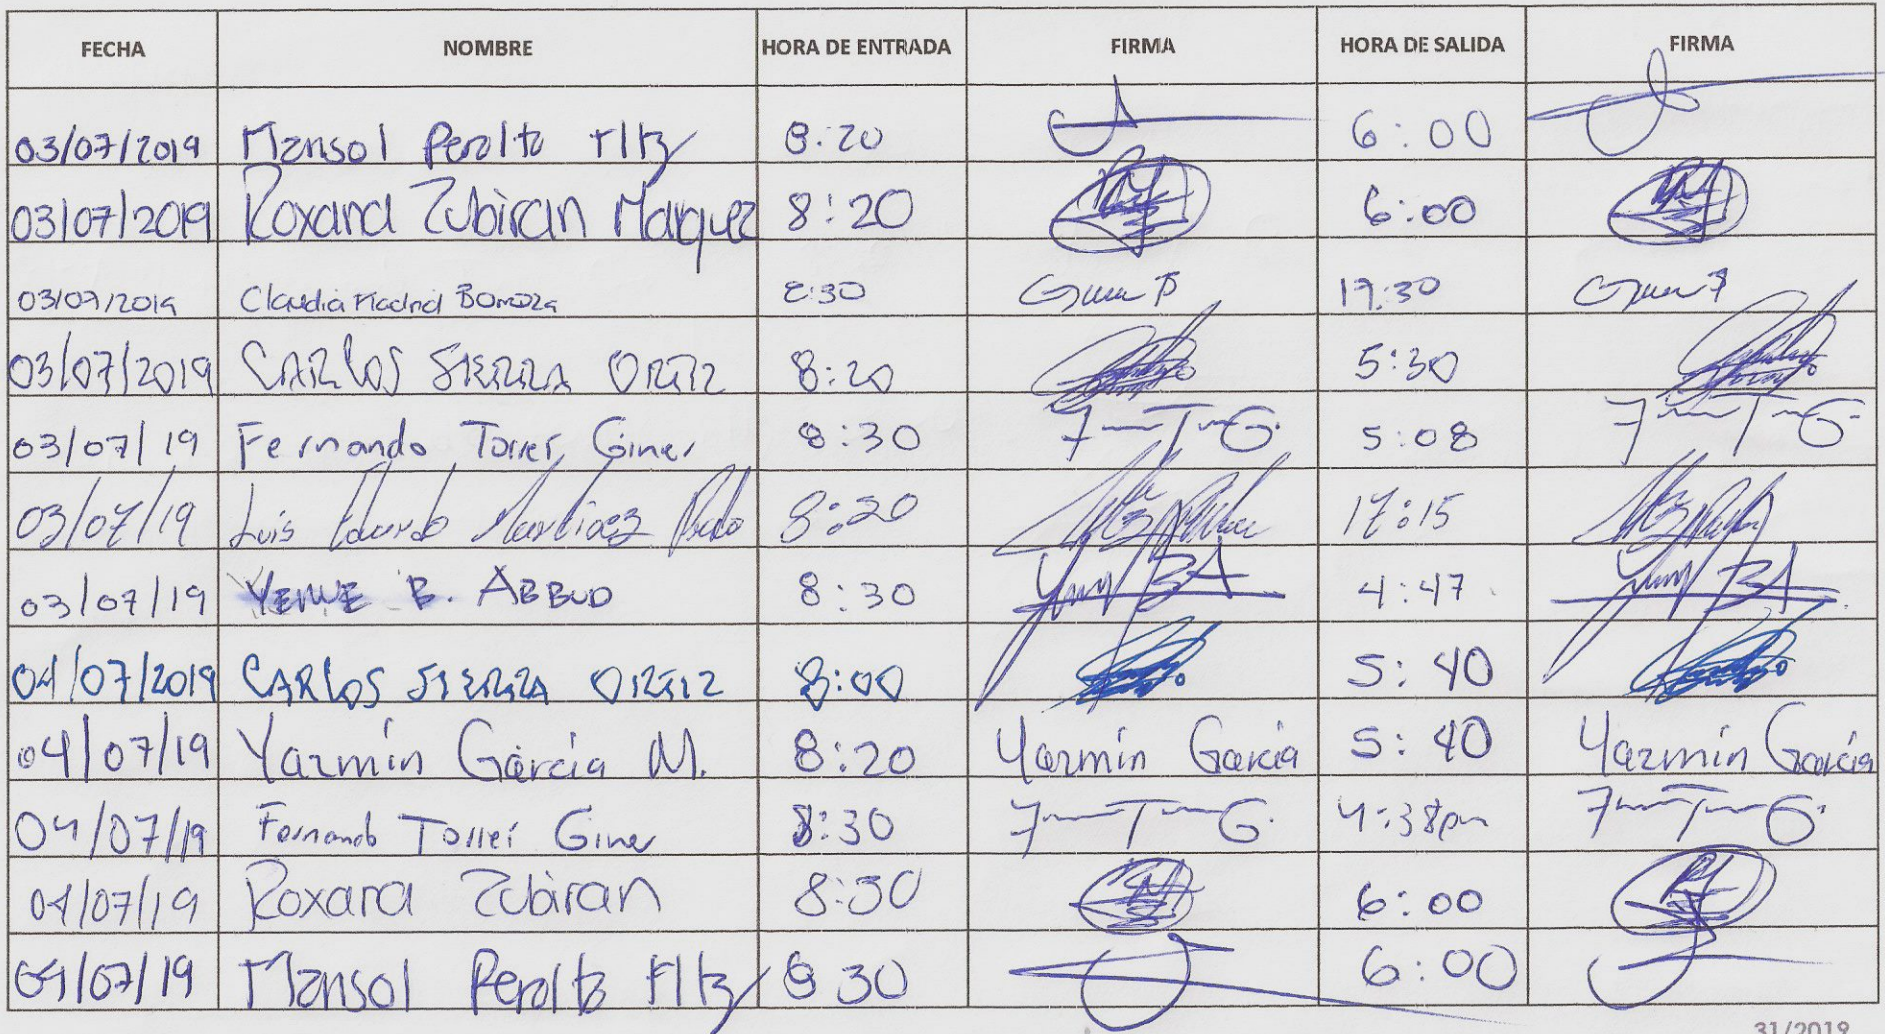 FECHA NOMBRE HORA DE ENTRADA FIRMA HORA DE SALIDA FIRMA
03/07/2019 Marisol Peralta Mtz 8:20 6:00
03/07/2019 Roxana Zubiran Marquez 8:20 6:00
03/07/2019 Claudia Madrid 8:30 17:30
03/07/2019 CARLOS SIERRA ORTIZ 8:20 5:30
03/07/19 Fernando Torres Giner 8:30 5:08
03/07/19 Luis Eduardo Martinez 8:20 17:15
03/07/19 B. ABBUD 8:30 4:47
04/07/2019 CARLOS SIERRA ORTIZ 8:00 5:40
04/07/19 Yazmín García M. 8:20 Yazmín García 5:40 Yazmín García
04/07/19 Fernando Torres Giner 8:30 4:38pm
04/07/19 Roxana Zubiran 8:30 6:00
04/07/19 Marisol Peralta Mtz 8 30 6:00
31/2019